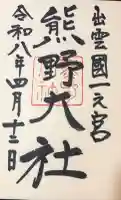 出雲國一之宮
熊野大社
令和八年四月十二日